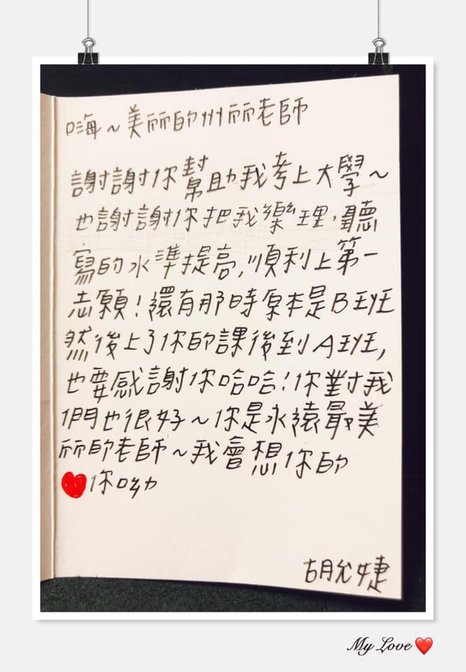 嗨~美丽的州丽老師
謝謝你幫助我考上大學~
也謝謝你把我樂理,聽
寫的水準提高,順利上第一
志願!還有那時原本是B班
然後上了你的課後到A班,
也要感謝你哈哈!你對我
們也很好~你是永遠最美
丽的老師~我會想你的
❤你呦
胡允婕
My Love❤